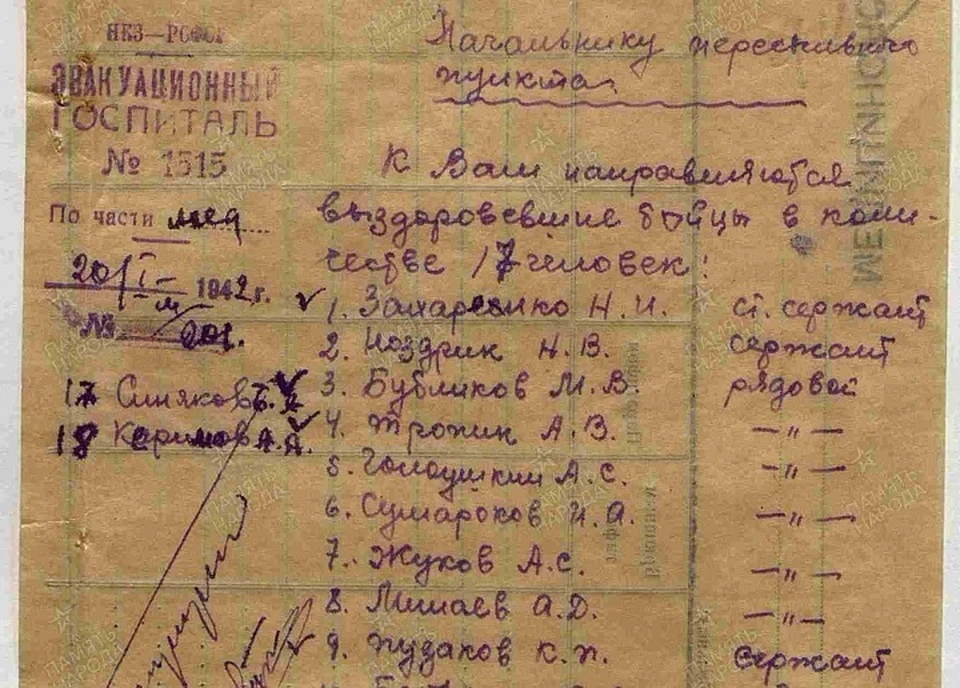 НКЗ—РСФСР
ЭВАКУАЦИОННЫЙ
ГОСПИТАЛЬ
№ 1515
По части мед
20/I-м 1942 г.
№ 201.
17 Синяков
18 Каримов А.А.
Начальнику пересыльного
пункта.
К Вам направляются
выздоровевшие бойцы в коли-
честве 17 человек:
1. Захаренко Н.И. ст. сержант
2. Ноздрик Н.В. сержант
3. Бубликов М.В. рядовой
4. Тропик А.В. —„—
5. Голоушкин А.С. —„—
6. Сумароков И.А. —„—
7. Жуков А.С. —„—
8. Мишаев А.Д. —„—
9. Пудаков К.П. сержант
ПАМЯТЬ НАРОДА